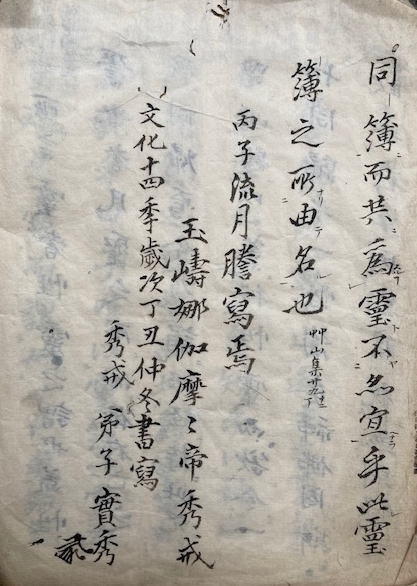 同簿而共為靈不忽宜乎此靈
簿之所由名也 艸山集廿九
丙子流月謄寫焉
玉嶹娜伽摩〻帝秀戒
文化十四季歳次丁丑仲冬書寫
秀戒弟子實秀